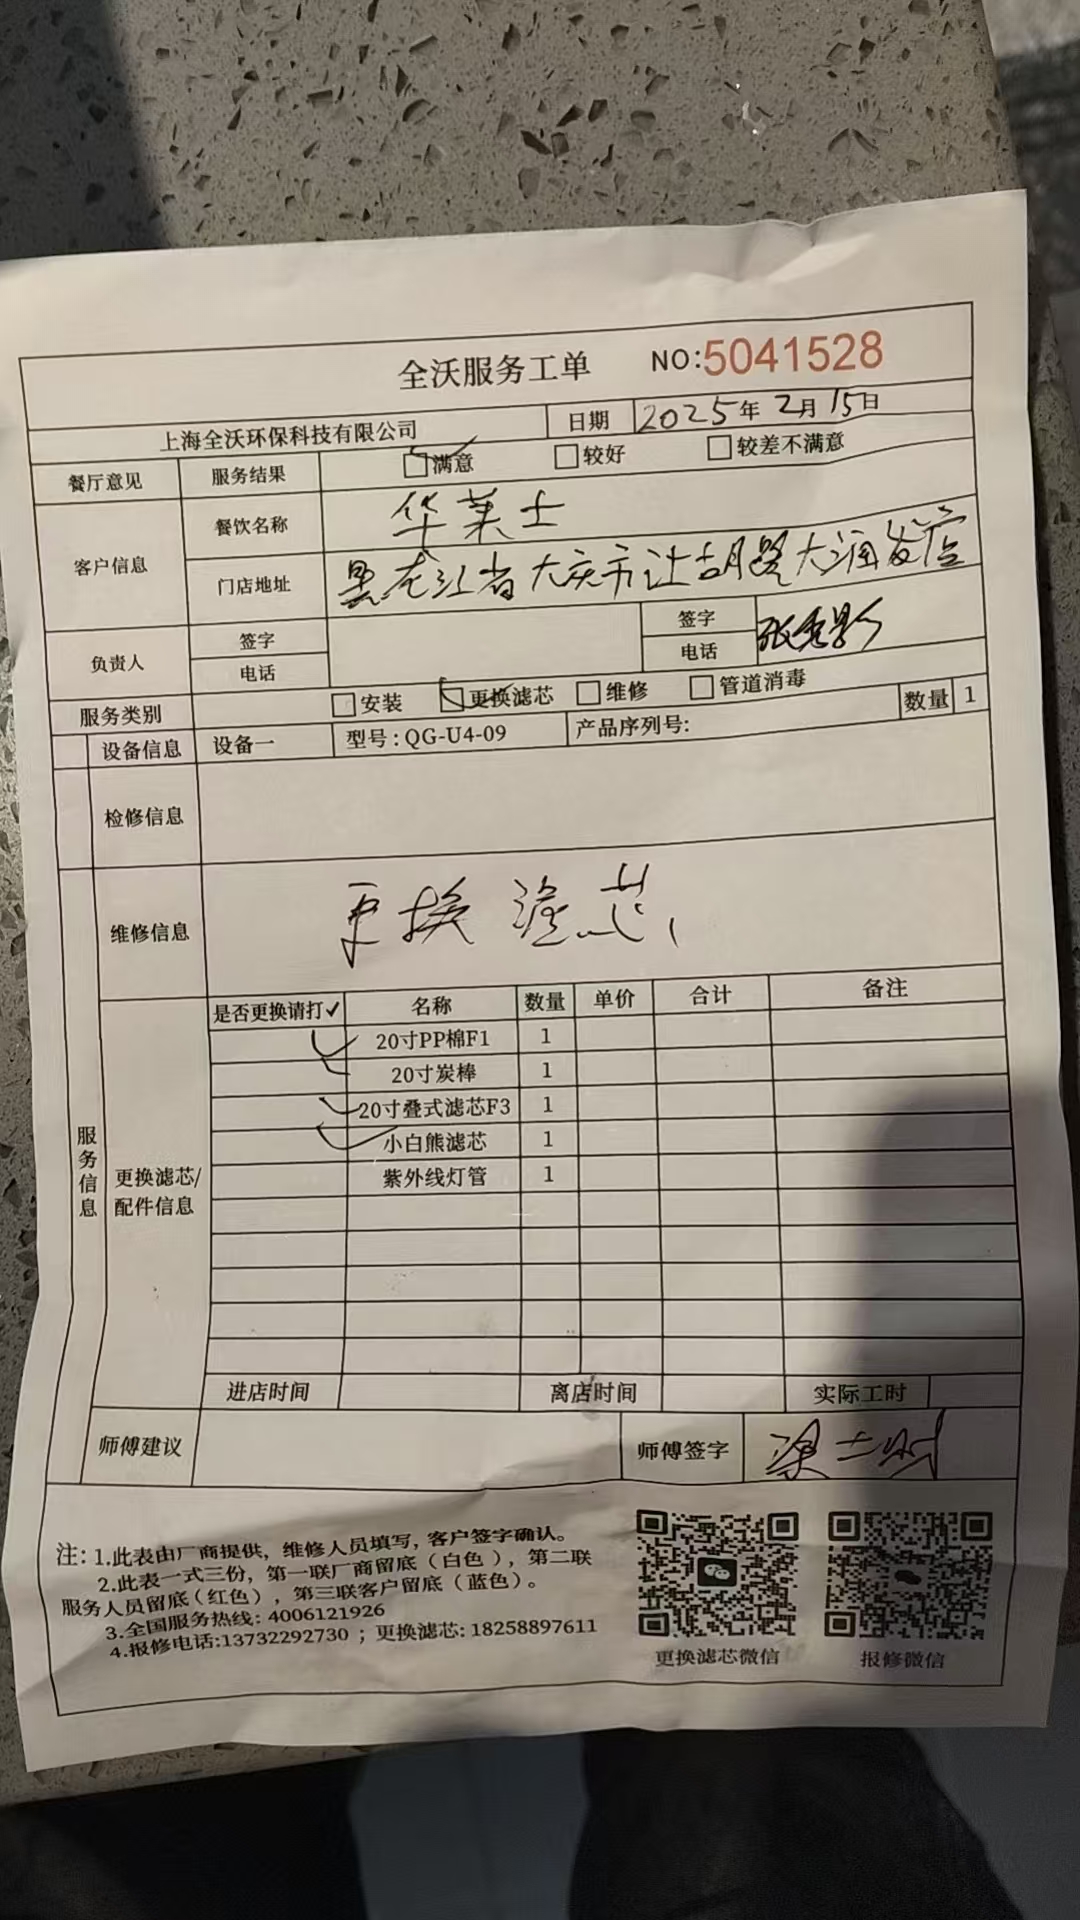 全沃服务工单 NO:5041528
上海全沃环保科技有限公司 日期 2025年2月15日
餐厅意见 服务结果 满意 较好 较差不满意
客户信息 餐饮名称 华莱士
门店地址 黑龙江省大庆市让胡路大润发店
负责人 签字 签字 张秀影
电话 电话
服务类别 安装 更换滤芯 维修 管道消毒
设备信息 设备一 型号:QG-U4-09 产品序列号: 数量 1
检修信息
维修信息 更换滤芯
服务信息
更换滤芯/配件信息
是否更换请打✓ 名称 数量 单价 合计 备注
✓ 20寸PP棉F1 1
✓ 20寸炭棒 1
✓ 20寸叠式滤芯F3 1
✓ 小白熊滤芯 1
紫外线灯管 1
进店时间 离店时间 实际工时
师傅建议 师傅签字
注: 1.此表由厂商提供，维修人员填写，客户签字确认。
2.此表一式三份，第一联厂商留底（白色），第二联
服务人员留底(红色），第三联客户留底（蓝色）。
3.全国服务热线: 4006121926
4.报修电话:13732292730 ; 更换滤芯: 18258897611
更换滤芯微信 报修微信